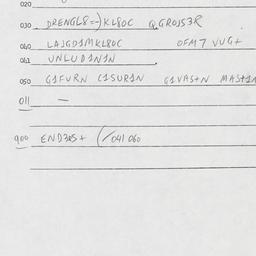 020
030 DRENGL8=-)KL8OC Q,GROJS3R
040 LAJGD1MKL8OC OFM7 VUG+
041 UNLUD1N1N
050 G1FURN C1SUR1N G1VAS+N MAS+1N
011 —
900 END3RS+ (/041 060